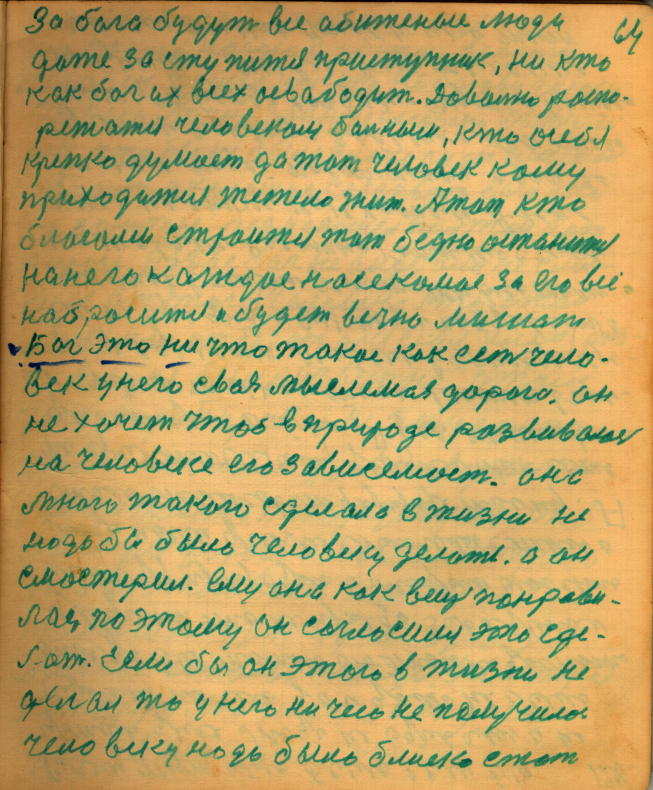 За бога будут все абиженые люди 64
даже заступится приступник, ни кто
как бог их всех освабодит. Довольно распо-
режатся человеком болным, кто о себя
крепко думает да тот человек кому
приходится тежело жит. А тот кто
благами строится тот бедно останится
на него каждое насекомое за его все
набросится и будет вечно мишат
Бог это ни что такое как сет чело-
век у него своя мыслемая дорога. он
не хочет чтоб в природе развивалас
на человеке его зависемост. она
много такого сделала в жизни не
надо бы было человеку делать. а он
смастерил. ему она как вещ понрави-
лас по этому он согласился это сде-
лат. Если бы он этого в жизни не
делал то у него ни чего не получилос
человеку надо было близко стат